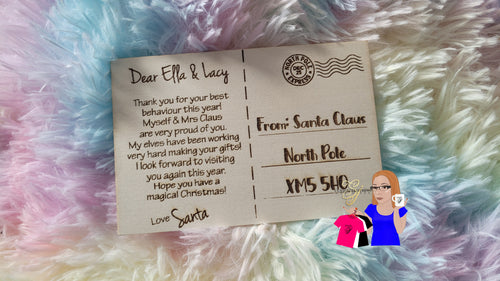 Dear Ella & Lacy
Thank you for your best
behaviour this year!
Myself & Mrs Claus
are very proud of you.
My elves have been working
very hard making your gifts!
I look forward to visiting
you again this year.
Hope you have a
magical Christmas!
Love Santa
NORTH POLE
DEC
25
EXPRESS
From: Santa Claus
North Pole
XM5 5HO